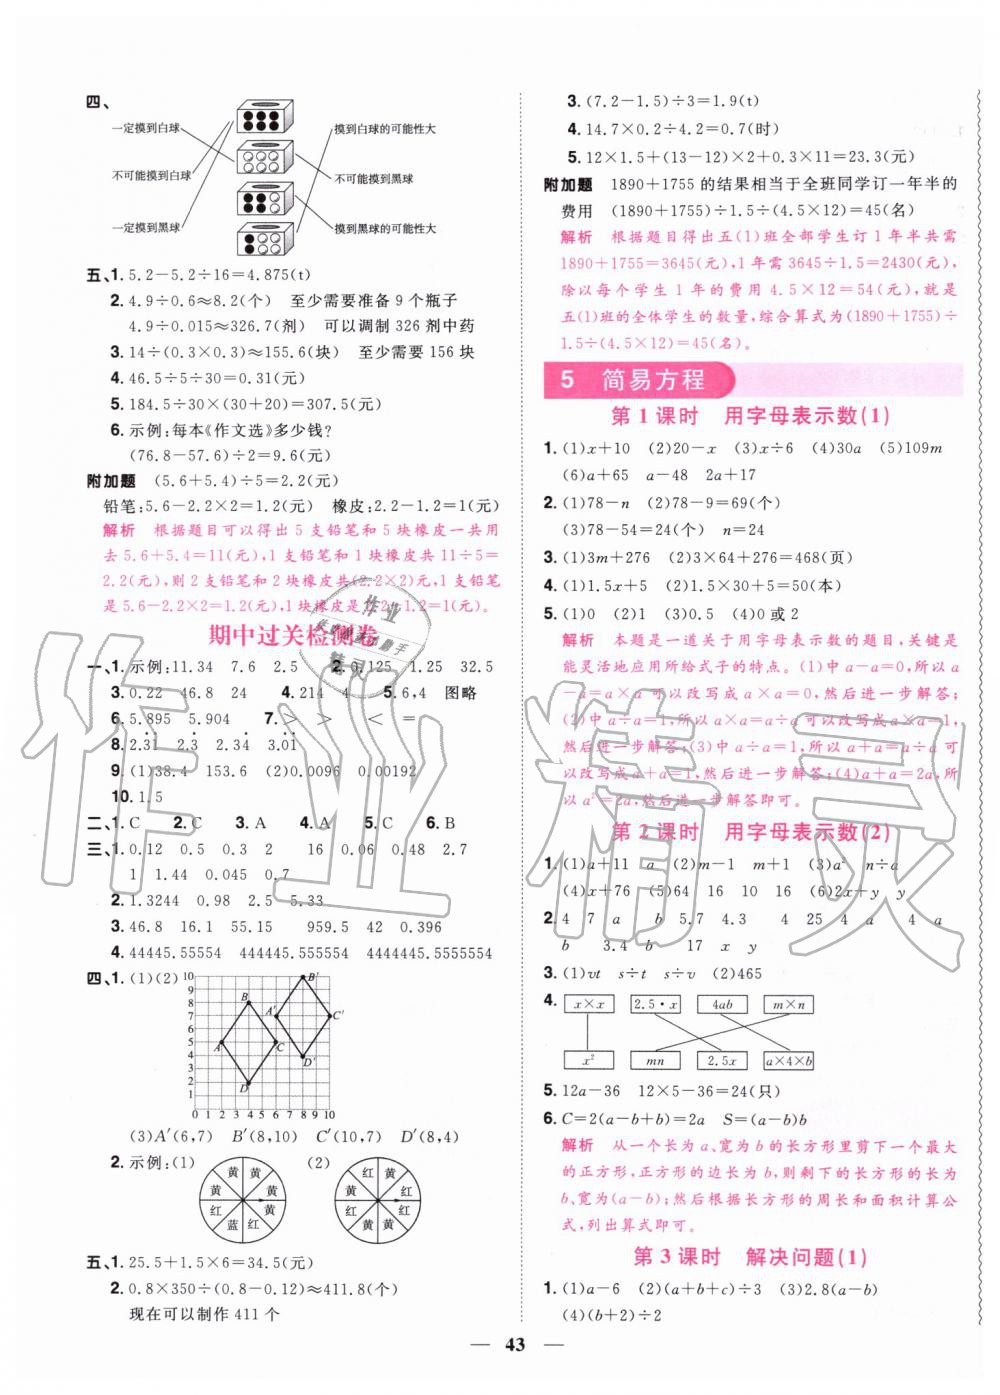 四、
一定摸到白球
摸到白球的可能性大
不可能摸到白球
不可能摸到黑球
一定摸到黑球
摸到黑球的可能性大
五、1. 5.2-5.2÷16=4.875(t)
2. 4.9÷0.6≈8.2(个) 至少需要准备 9 个瓶子
4.9÷0.015≈326.7(剂) 可以调制 326 剂中药
3. 14÷(0.3×0.3)≈155.6(块) 至少需要 156 块
4. 46.5÷5÷30=0.31(元)
5. 184.5÷30×(30+20)=307.5(元)
6. 示例:每本《作文选》多少钱?
(76.8-57.6)÷2=9.6(元)
附加题 (5.6+5.4)÷5=2.2(元)
铅笔:5.6-2.2×2=1.2(元) 橡皮:2.2-1.2=1(元)
解析 根据题目可以得出 5 支铅笔和 5 块橡皮一共用
去 5.6+5.4=11(元),1 支铅笔和 1 块橡皮共 11÷5=
2.2(元),则 2 支铅笔和 2 块橡皮共(2.2×2)元,1 支铅笔
是 5.6-2.2×2=1.2(元),1 块橡皮是 2.2-1.2=1(元)。
期中过关检测卷
一、1. 示例:11.34 7.6 2.5 2. 0.125 1.25 32.5
3. 0.22 46.8 24 4. 214 4 5. 6,4 图略
6. 5.895 5.904 7. > > < =
8. 2.3̇1̇ 2.3̇ 2.3̇4̇ 3.0̇1̇
9. (1)38.4 153.6 (2)0.0096 0.00192
10. 1.5
二、1. C 2. C 3. A 4. A 5. C 6. B
三、1. 0.12 0.5 0.3 2 16 0.06 0.48 2.7
1 1.44 0.045 0.7
2. 1.3244 0.98 2.5 5.33
3. 46.8 16.1 55.15 959.5 42 0.396
4. 44445.55554 444445.555554 4444445.5555554
四、1. (1)(2)
10
9
8
7
6
5
4
3
2
1
0 1 2 3 4 5 6 7 8 9 10
A B C D A′ B′ C′ D′
(3)A′(6,7) B′(8,10) C′(10,7) D′(8,4)
2. 示例:(1) (2)
黄 黄 黄 黄 红 蓝 红 黄
红 黄 红 红 黄 黄 红 黄
五、1. 25.5+1.5×6=34.5(元)
2. 0.8×350÷(0.8-0.12)≈411.8(个)
现在可以制作 411 个
3. (7.2-1.5)÷3=1.9(t)
4. 14.7×0.2÷4.2=0.7(时)
5. 12×1.5+(13-12)×2+0.3×11=23.3(元)
附加题 1890+1755 的结果相当于全班同学订一年半的
费用 (1890+1755)÷1.5÷(4.5×12)=45(名)
解析 根据题目得出五(1)班全部学生订 1 年半共需
1890+1755=3645(元),1 年需 3645÷1.5=2430(元),
除以每个学生 1 年的费用 4.5×12=54(元),就是
五(1)班的全体学生的数量,综合算式为(1890+1755)÷
1.5÷(4.5×12)=45(名)。
5 简易方程
第 1 课时 用字母表示数(1)
1. (1)x+10 (2)20-x (3)x÷6 (4)30a (5)109m
(6)a+65 a-48 2a+17
2. (1)78-n (2)78-9=69(个)
(3)78-54=24(个) n=24
3. (1)3m+276 (2)3×64+276=468(页)
4. (1)1.5x+5 (2)1.5×30+5=50(本)
5. (1)0 (2)1 (3)0.5 (4)0 或 2
解析 本题是一道关于用字母表示数的题目,关键是
能灵活地应用所给式子的特点。(1)中 a-a=0,所以 a-
a=a×a 可以改写成 a×a=0,然后进一步解答;
(2)中 a÷a=1,所以 a×a=a÷a 可以改写成 a×a=1,
然后进一步解答;(3)中 a÷a=1,所以 a+a=a÷a 可
以改写成 a+a=1,然后进一步解答;(4)a+a=2a,所
以 a²=2a,然后进一步解答即可。
第 2 课时 用字母表示数(2)
1. (1)a+11 a (2)m-1 m+1 (3)a² n÷a
(4)x+76 (5)64 16 10 16 (6)2x+y y
2. 4 7 a b 5.7 4.3 4 25 4 a 4 a
b 3.4 b 17 x y
3. (1)vt s÷t s÷v (2)465
4. x×x 2.5·x 4ab m×n
x² mn 2.5x a×4×b
5. 12a-36 12×5-36=24(只)
6. C=2(a-b+b)=2a S=(a-b)b
解析 从一个长为 a、宽为 b 的长方形里剪下一个最大
的正方形,正方形的边长为 b,则剩下的长方形的长为
b、宽为(a-b);然后根据长方形的周长和面积计算公
式,列出算式即可。
第 3 课时 解决问题(1)
1. (1)a-6 (2)(a+b+c)÷3 (3)2.8(a-b)
(4)(b+2)÷2
43
作业精灵